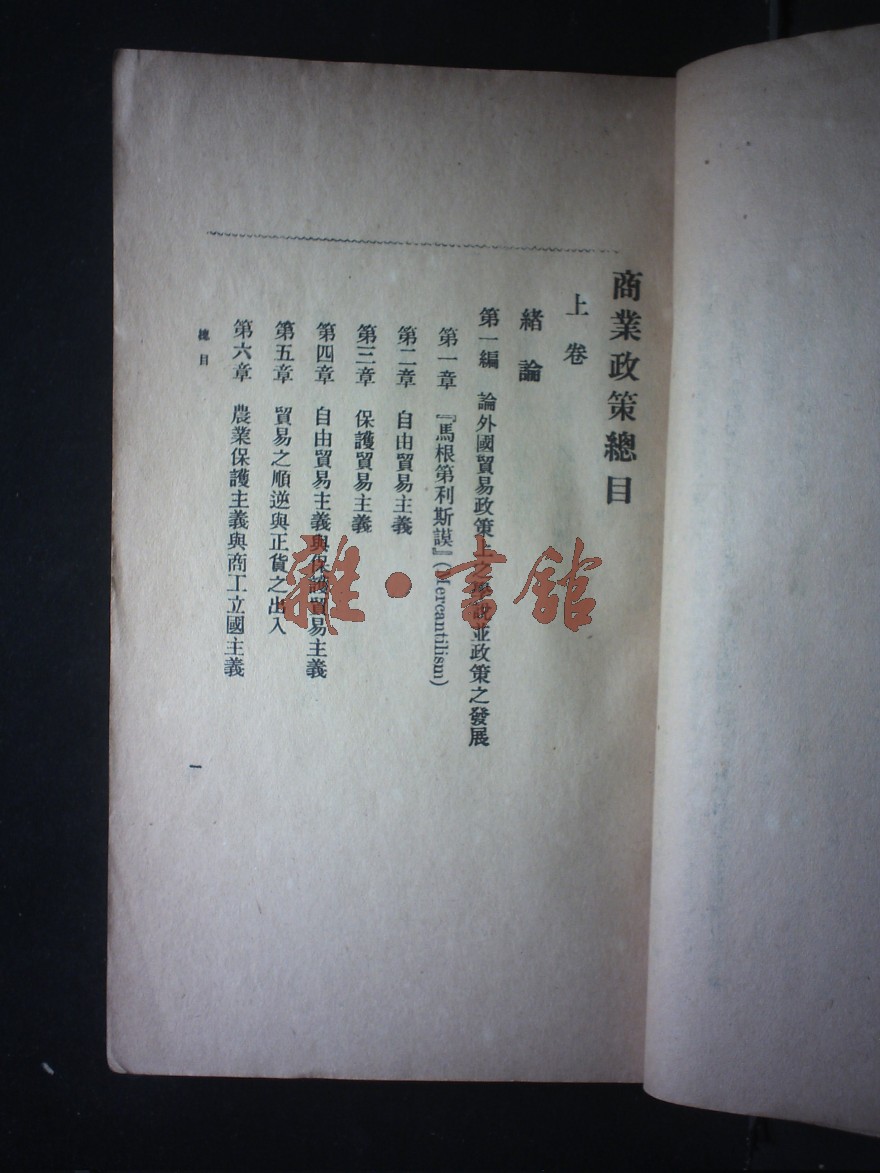 商業政策總目
上卷
緒論
第一編 論外國貿易政策上之學說並政策之發展
第一章 『馬根第利斯謨』(Mercantilism)
第二章 自由貿易主義
第三章 保護貿易主義
第四章 自由貿易主義與保護貿易主義
第五章 貿易之順逆與正貨之出入
第六章 農業保護主義與商工立國主義
總目
一
雜·書館